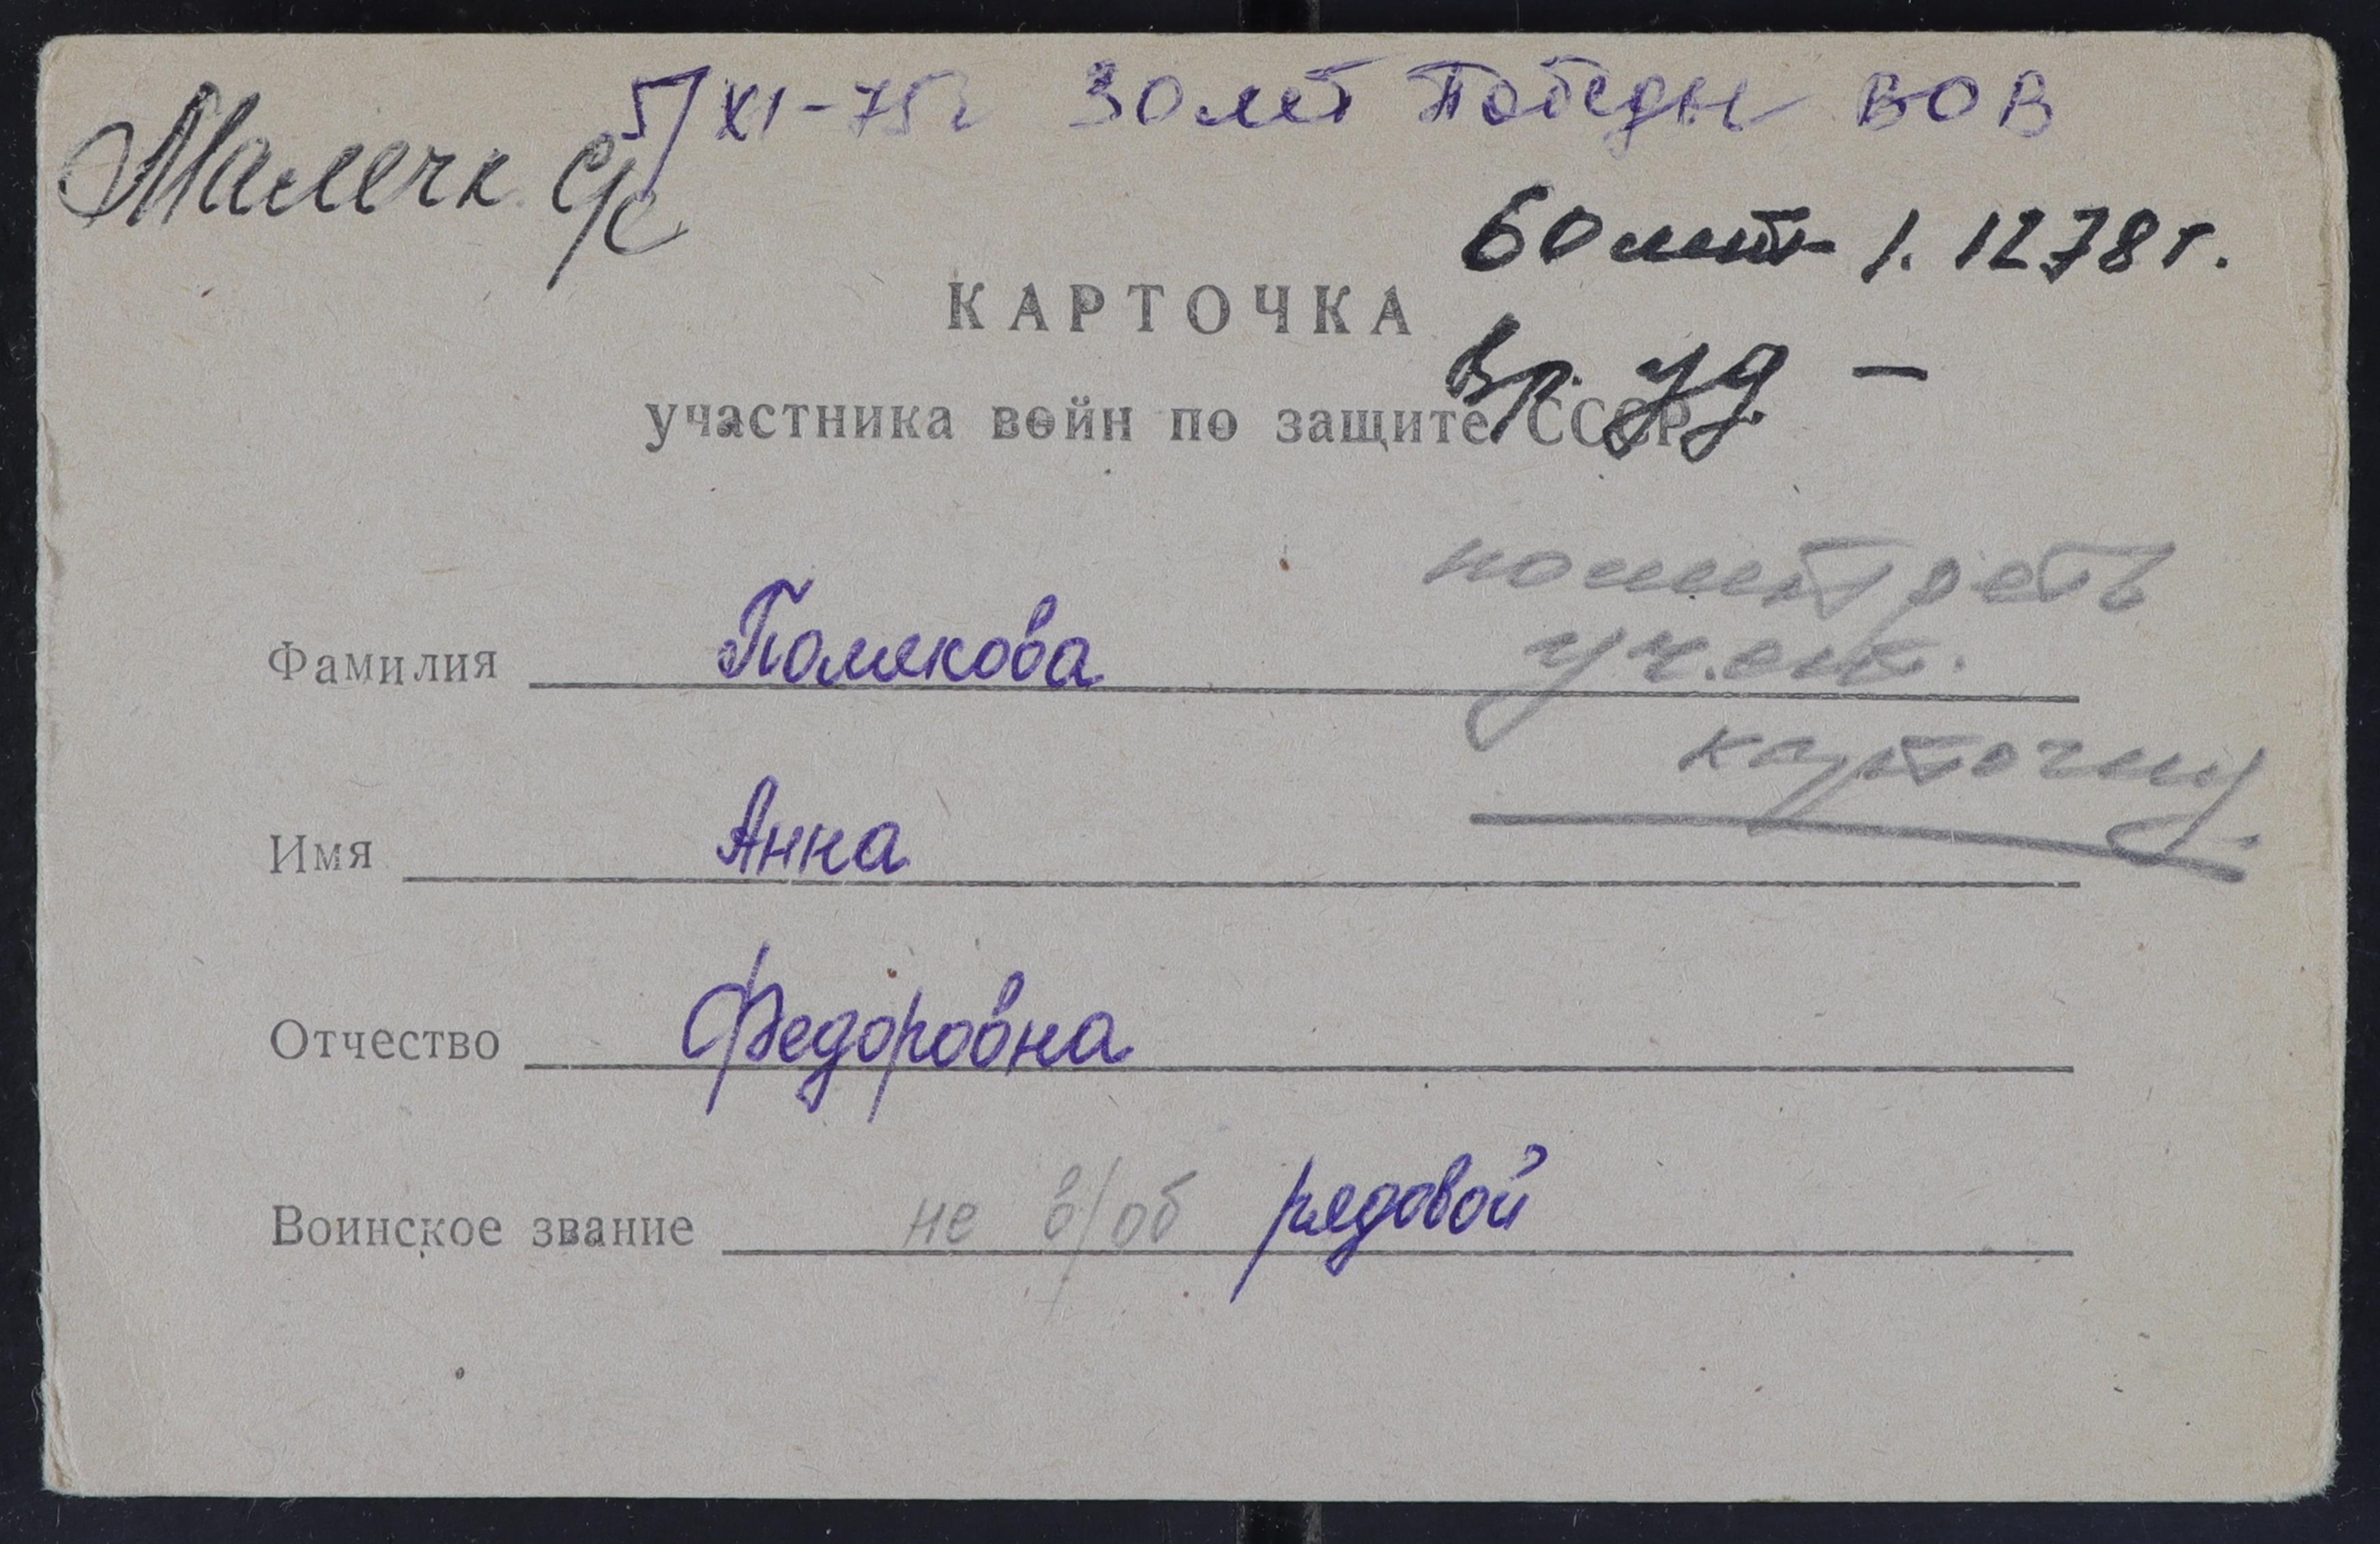 5/XI-75г 30 лет Победы ВОВ
Малечк. с/с
60 лет 1.12 78 г.
КАРТОЧКА
Вр. уд. —
участника войн по защите СССР
посмотреть
Фамилия Полякова
учетн.
карточку
Имя Анна
Отчество Федоровна
Воинское звание не в/об рядовой